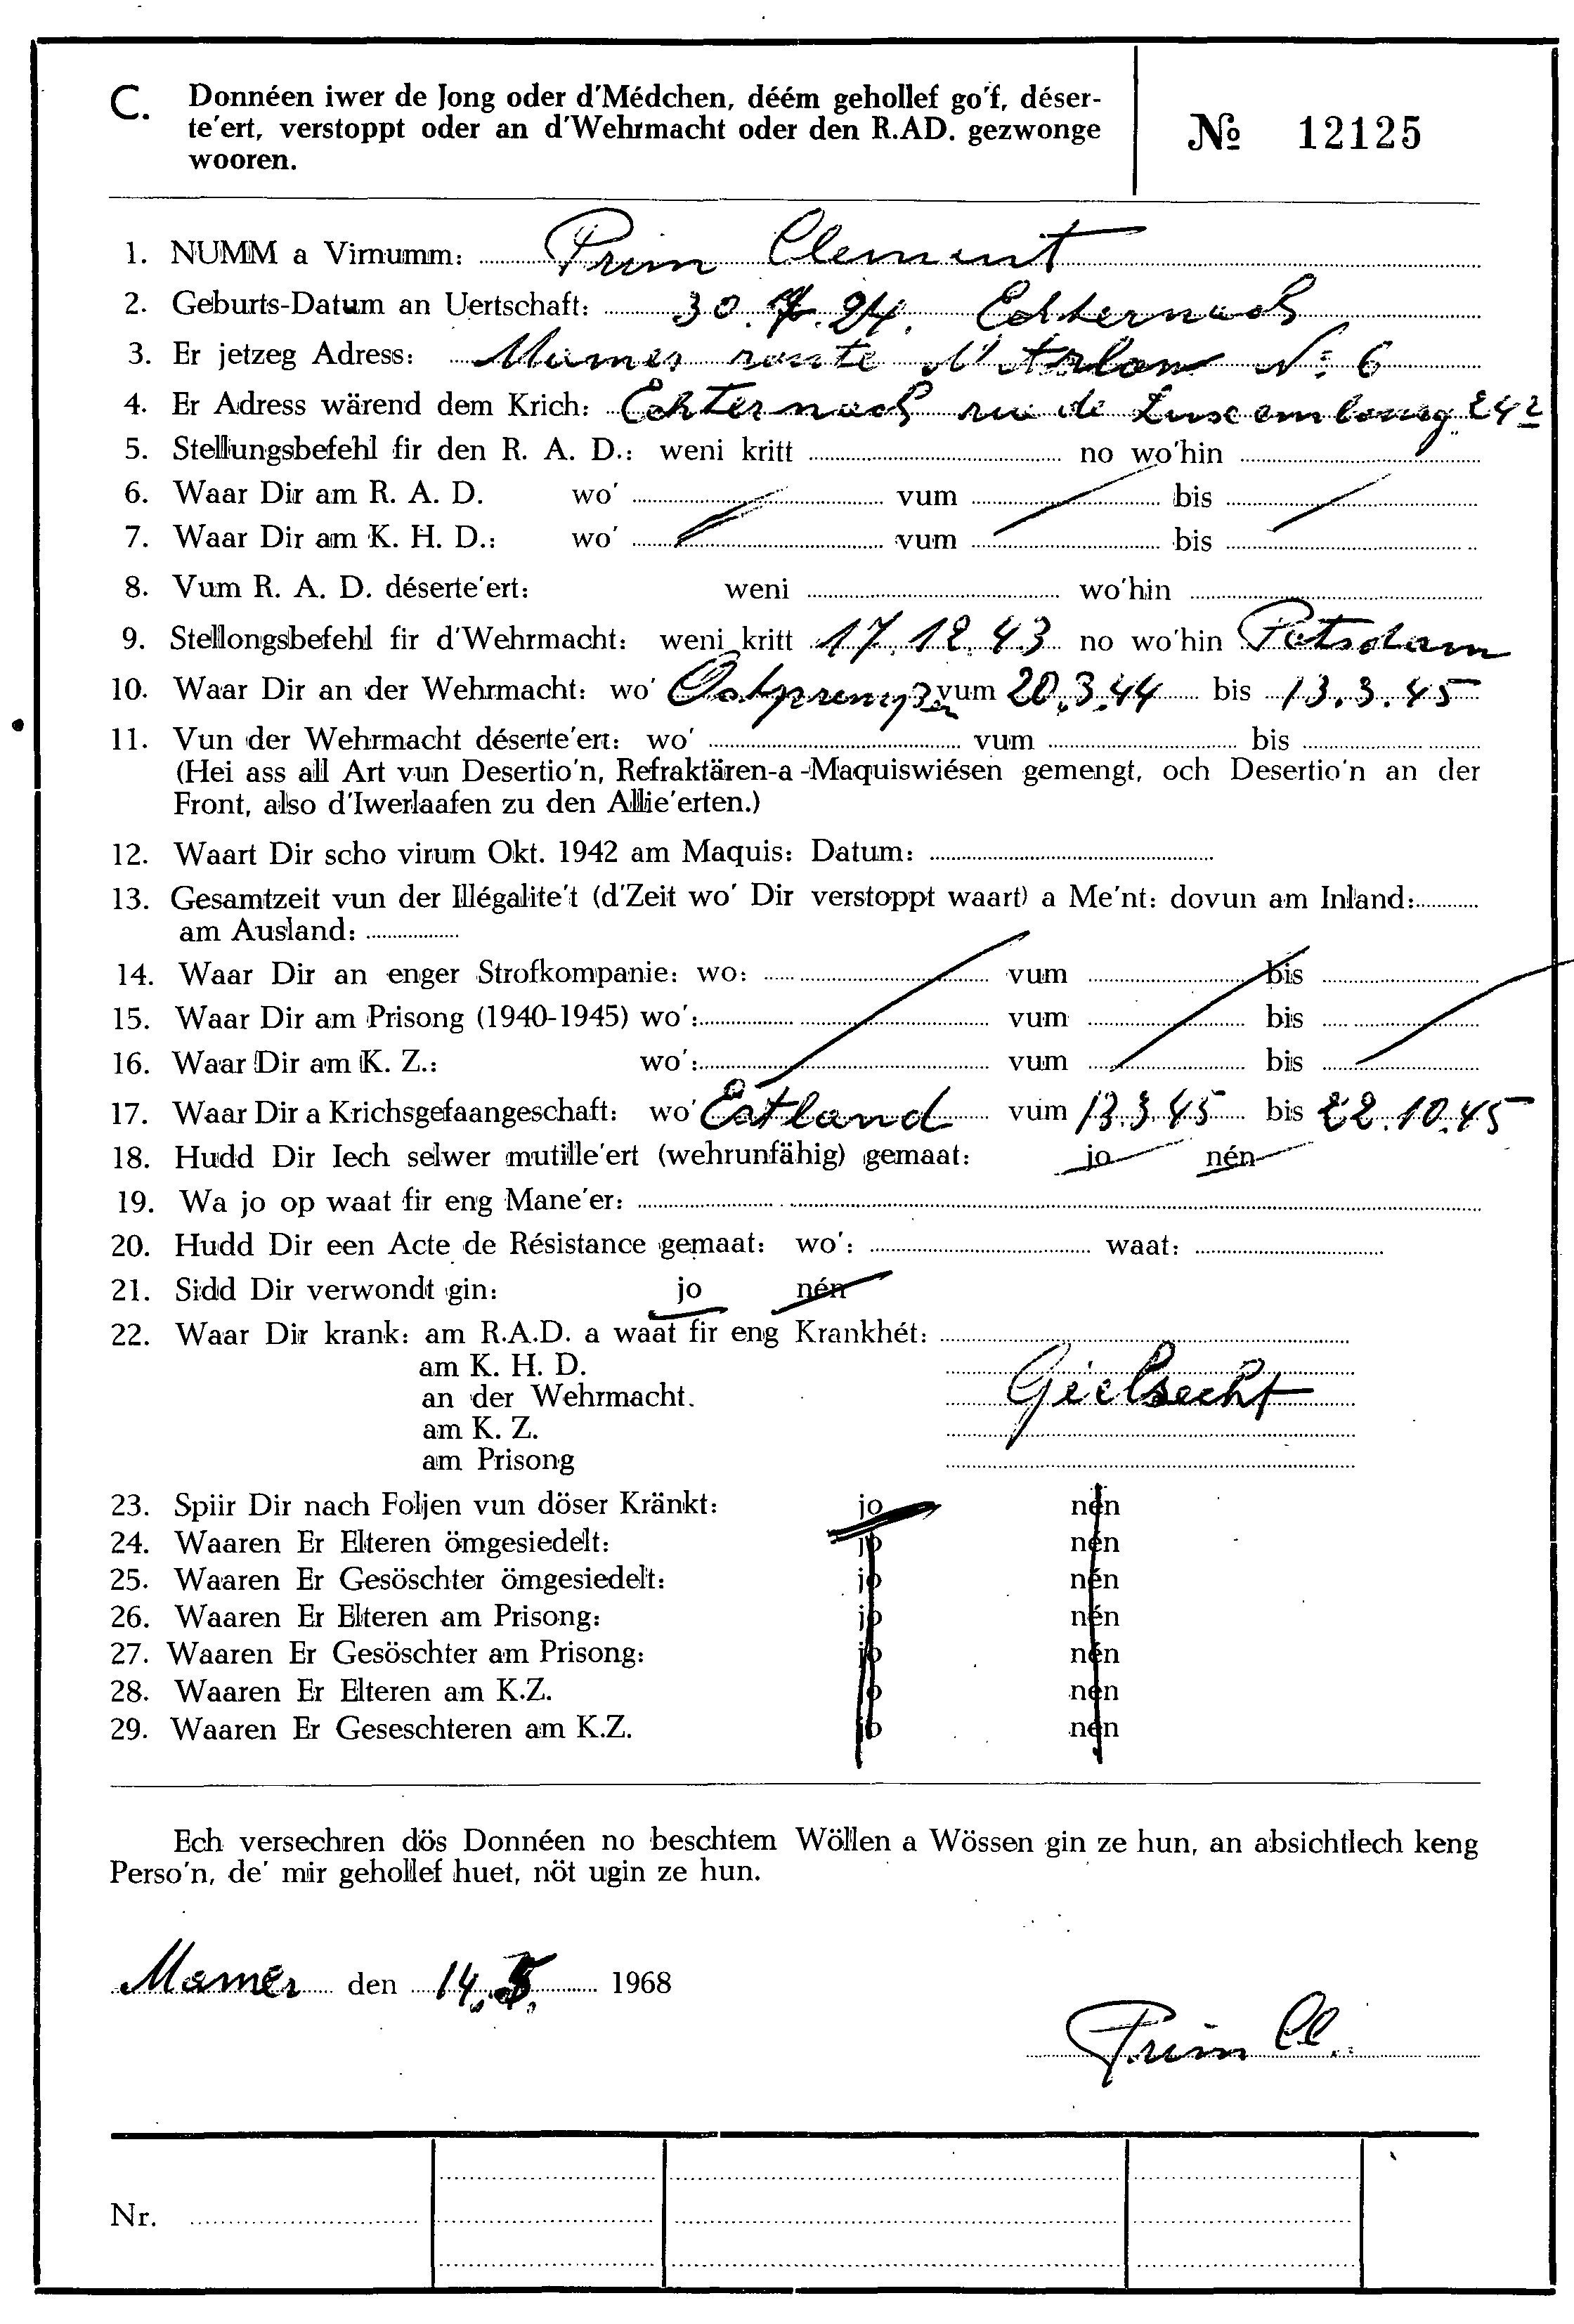 C. Donnéen iwer de Jong oder d'Médchen, déém gehollef go'f, déser-
te'ert, verstoppt oder an d'Wehrmacht oder den R.AD. gezwonge
wooren.
№ 12125
1. NUMM a Virnumm: Prim Clement
2. Geburts-Datum an Uertschaft: 30. 24. Echternach
3. Er jetzeg Adress: Mamer route d'Arlon N° 6
4. Er Adress wärend dem Krich: Echternach rue de Luxembourg 24
5. Stellungsbefehl fir den R. A. D.: weni kritt ........ no wo'hin ........
6. Waar Dir am R. A. D. wo' ........ vum ........ bis ........
7. Waar Dir am K. H. D.: wo' ........ vum ........ bis ........
8. Vum R. A. D. déserte'ert: weni ........ wo'hin ........
9. Stellongsbefehl fir d'Wehrmacht: weni kritt 17.12.43 no wo'hin Potsdam
10. Waar Dir an der Wehrmacht: wo' Ostpreußen vum 20.3.44 bis 13.3.45
11. Vun der Wehrmacht déserte'ert: wo' ........ vum ........ bis ........
(Hei ass all Art vun Desertio'n, Refraktären-a-Maquiswiésen gemengt, och Desertio'n an der
Front, also d'Iwerlaafen zu den Allie'erten.)
12. Waart Dir scho virum Okt. 1942 am Maquis: Datum: ........
13. Gesamtzeit vun der Illégalite't (d'Zeit wo' Dir verstoppt waart) a Me'nt: dovun am Inland: ........
am Ausland: ........
14. Waar Dir an enger Strofkompanie: wo: ........ vum ........ bis ........
15. Waar Dir am Prisong (1940-1945) wo': ........ vum ........ bis ........
16. Waar Dir am K. Z.: wo': ........ vum ........ bis ........
17. Waar Dir a Krichsgefaangeschaft: wo' Estland vum 13.3.45 bis 22.10.45
18. Hudd Dir Iech selwer mutille'ert (wehrunfähig) gemaat: jo nén
19. Wa jo op waat fir eng Mane'er: ........
20. Hudd Dir een Acte de Résistance gemaat: wo': ........ waat: ........
21. Sidd Dir verwondt gin: jo nén
22. Waar Dir krank: am R.A.D. a waat fir eng Krankhét: ........
am K. H. D.
an der Wehrmacht. Gielsecht
am K. Z.
am Prisong
23. Spiir Dir nach Foljen vun döser Kränkt: jo nén
24. Waaren Er Elteren ömgesiedelt: jo nén
25. Waaren Er Gesöschter ömgesiedelt: jo nén
26. Waaren Er Elteren am Prisong: jo nén
27. Waaren Er Gesöschter am Prisong: jo nén
28. Waaren Er Elteren am K.Z. jo nén
29. Waaren Er Geseschteren am K.Z. jo nén
Ech versechren dös Donnéen no beschtem Wöllen a Wössen gin ze hun, an absichtlech keng
Perso'n, de' mir gehollef huet, nöt ugin ze hun.
Mamer den 14. 5. 1968
Prim Cl.
Nr. ........